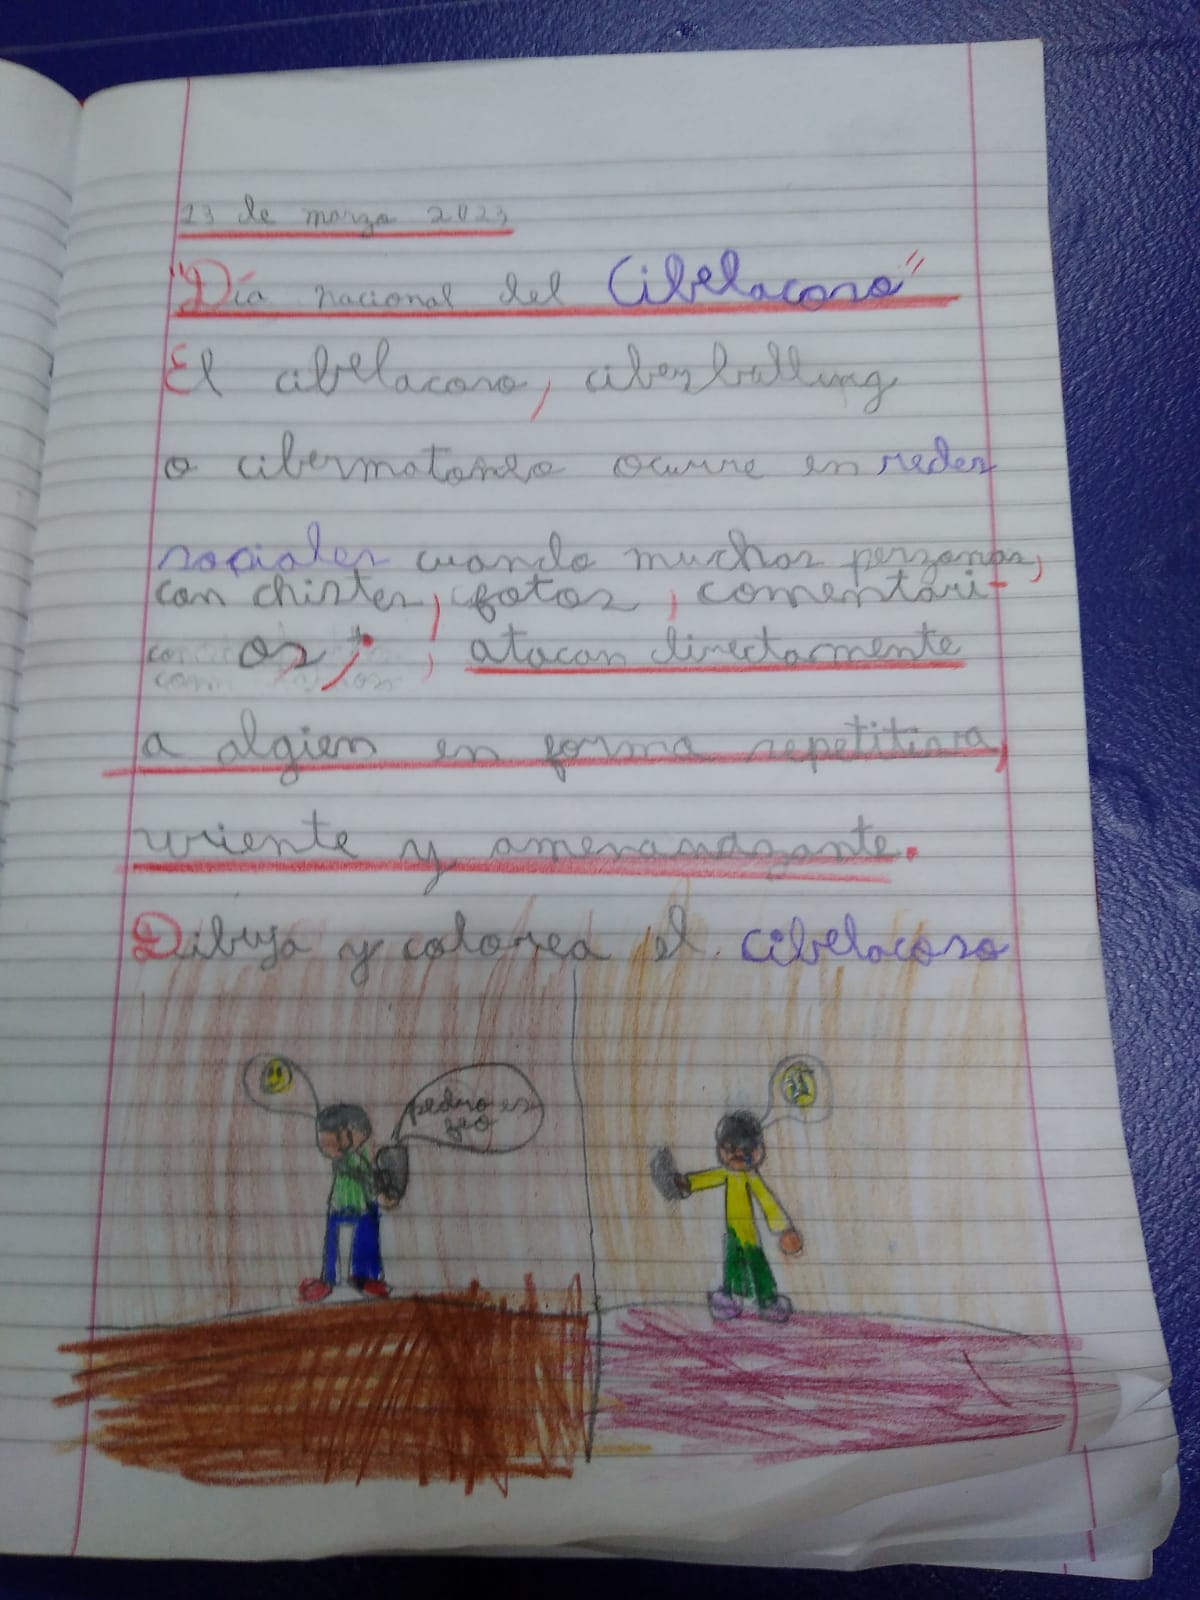 13 de marzo 2023
"Día nacional del Cibelacoso"
El cibelacoso, ciberbulling
o cibermatoneo ocurre en redes
sociales cuando muchas perzonas,
con chistes, fotos, comentari-
os, atacan directamente
a algien en forma repetitiva,
y amenanazante.
Dibuja y colorea el cibelacoso
pedro es
feo